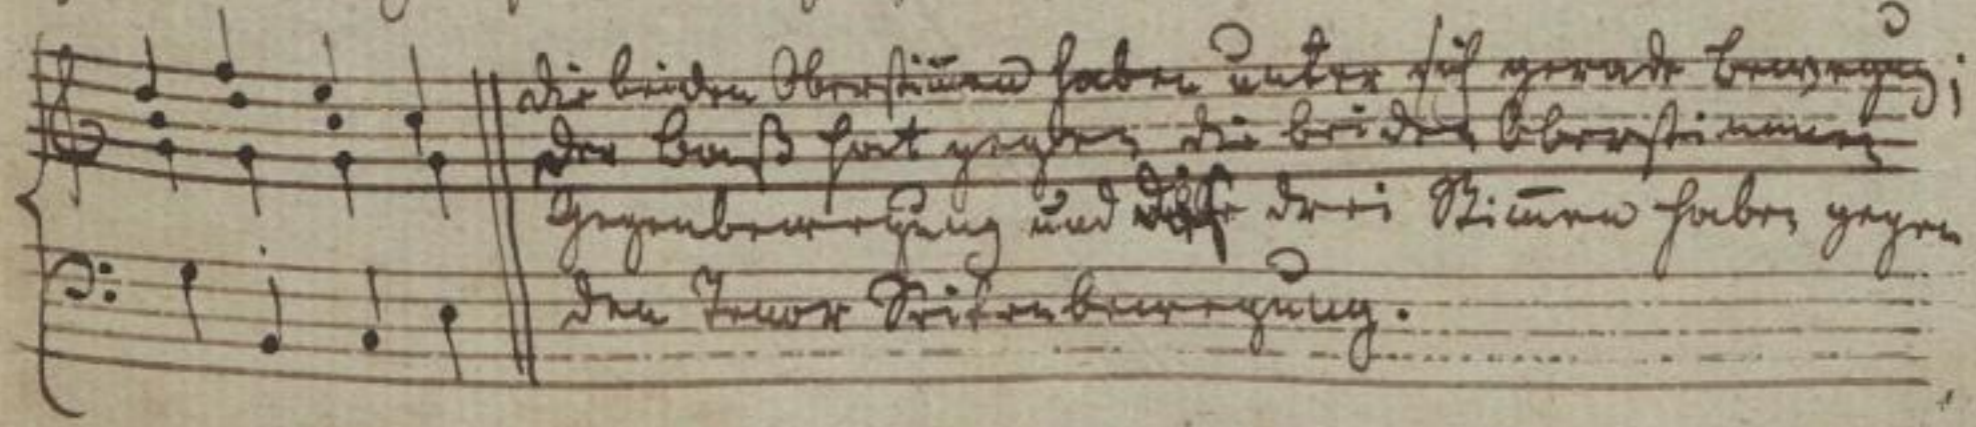 die beiden Oberstim̄en haben unter sich gerade Bewegūg;
der Bauß hat gegen die beiden Oberstimmen
Gegenbewegung und diese drei Stim̄en haben gegen
den Tenor Seitenbewegung.